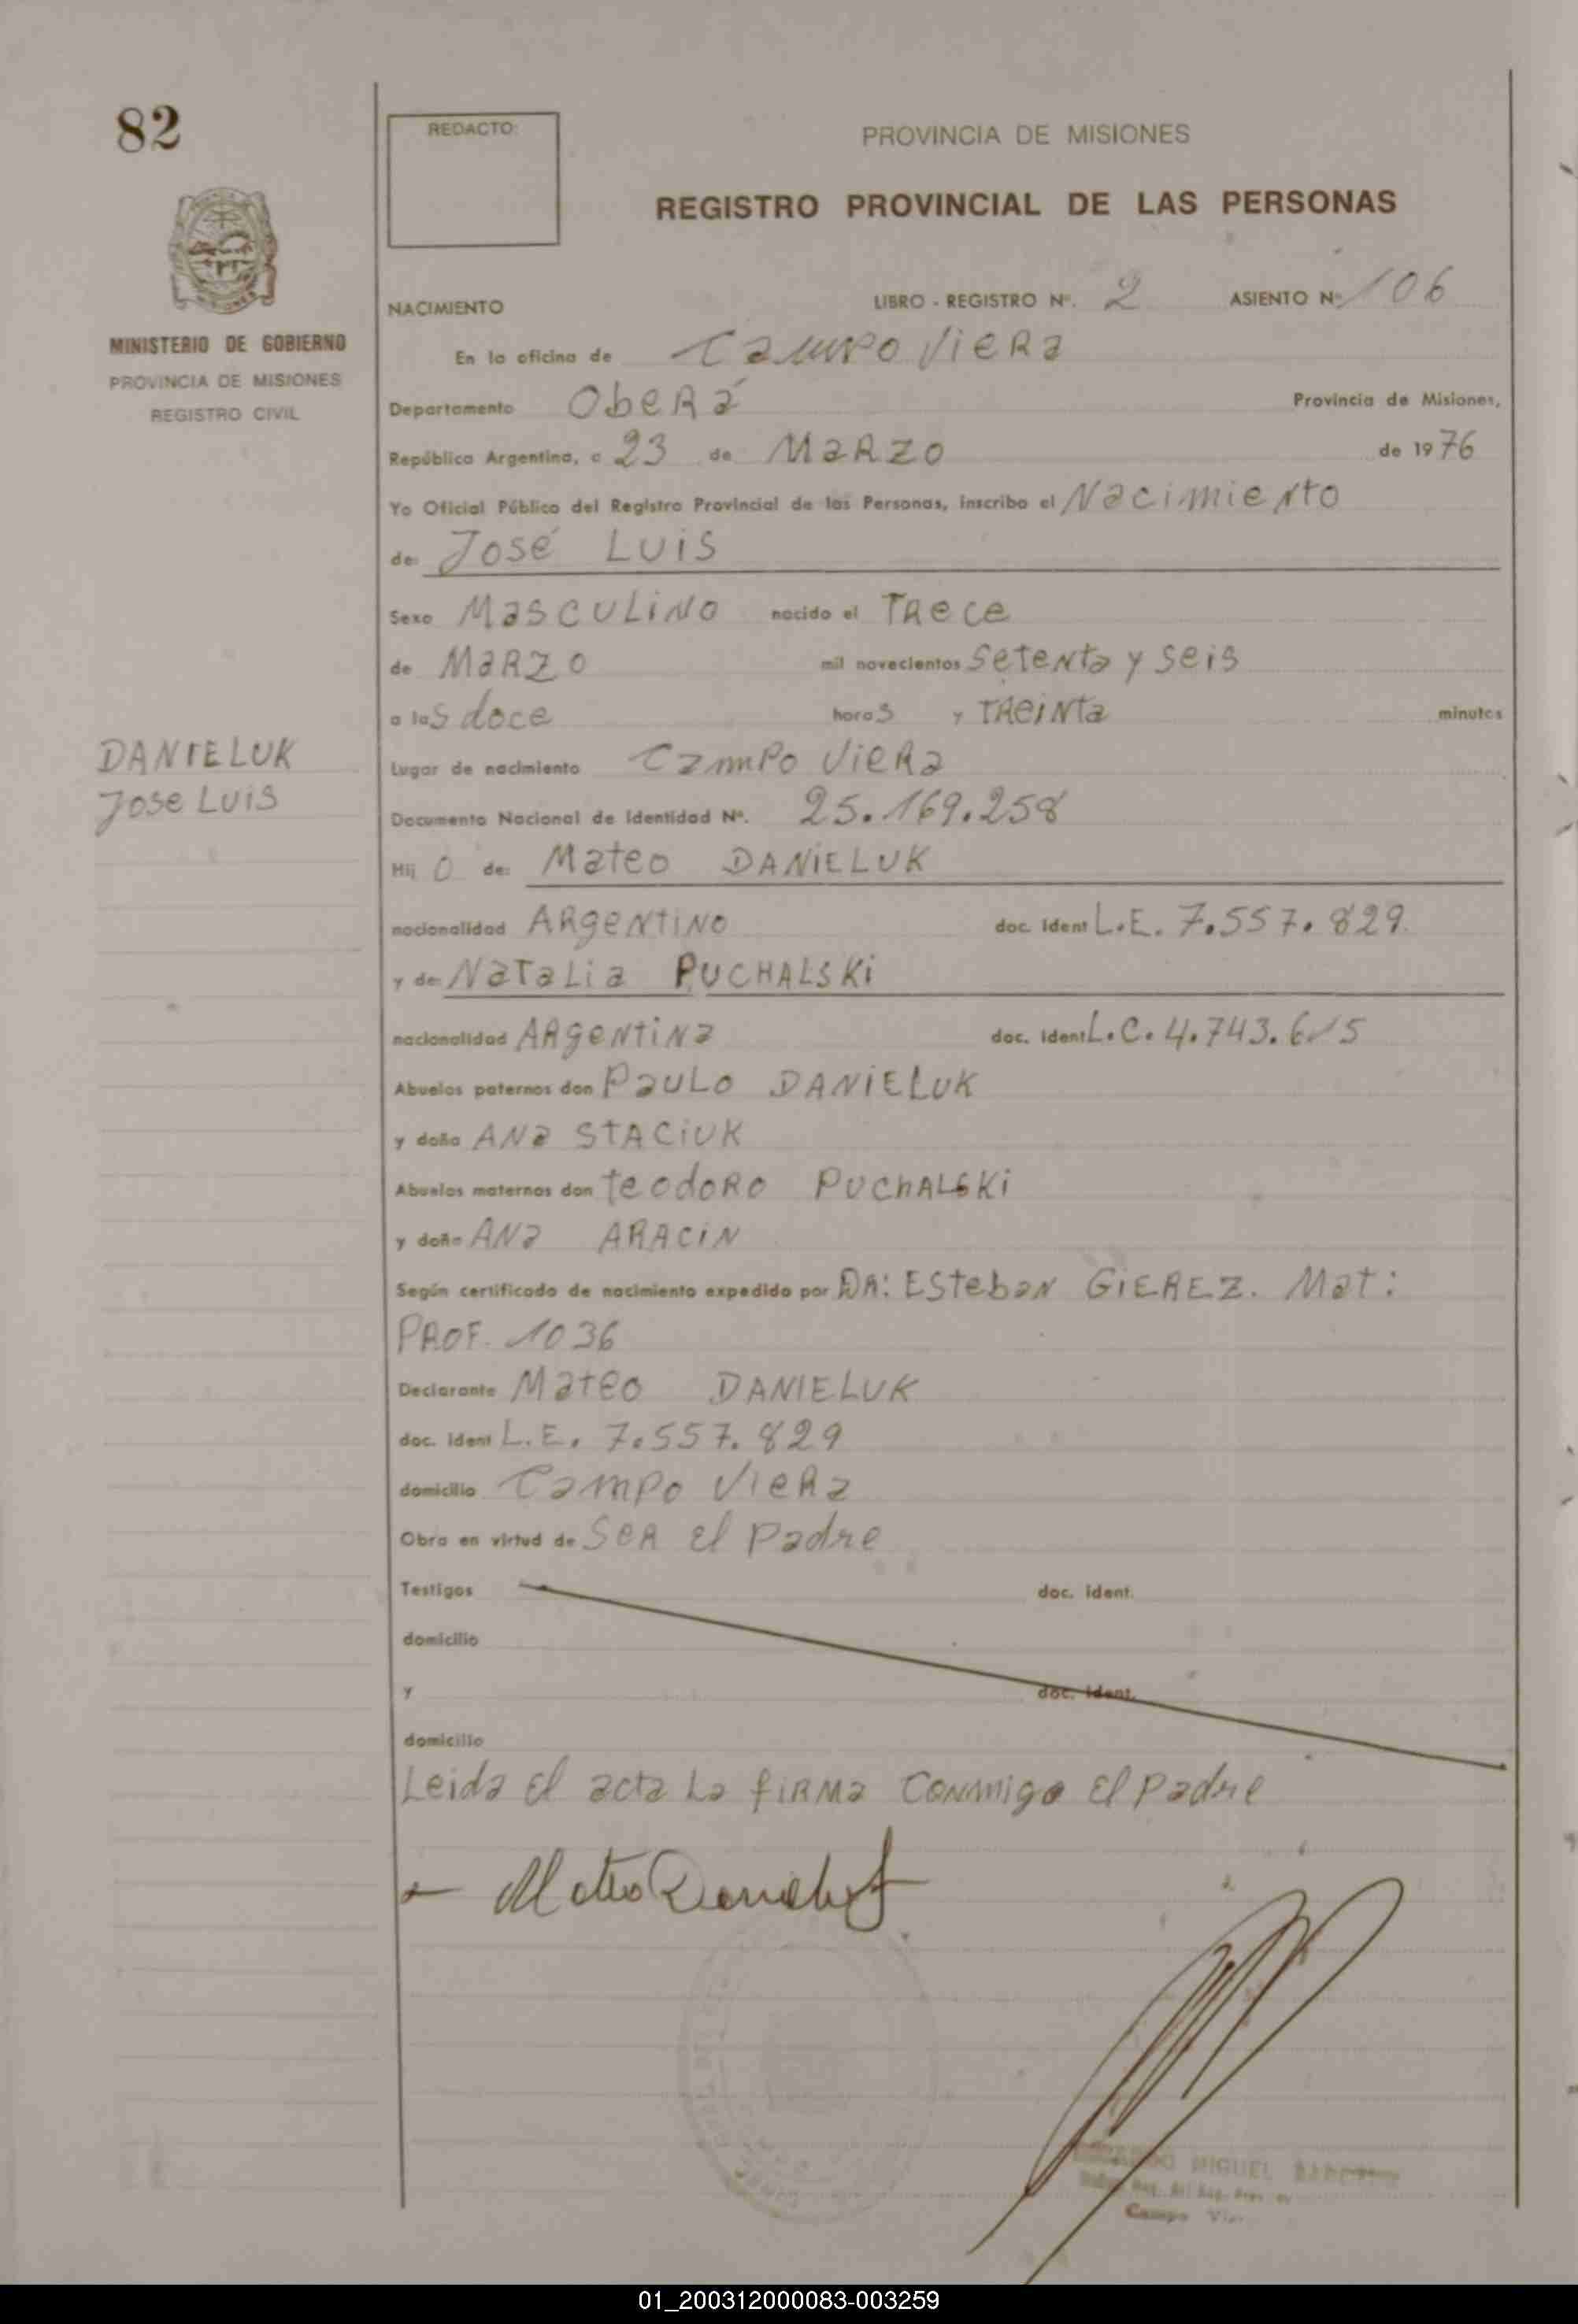 82
REDACTO:
PROVINCIA DE MISIONES
REGISTRO PROVINCIAL DE LAS PERSONAS
MINISTERIO DE GOBIERNO
PROVINCIA DE MISIONES
REGISTRO CIVIL
NACIMIENTO LIBRO - REGISTRO Nº. 2 ASIENTO Nº 106
En la oficina de Campo Viera
Departamento Oberá Provincia de Misiones,
República Argentina, a 23 de Marzo de 1976
Yo Oficial Público del Registro Provincial de las Personas, inscribo el Nacimiento
de: José Luis
Sexo Masculino nacido el Trece
de Marzo mil novecientos Setenta y seis
a las doce horas y Treinta minutos
DANIELUK
Jose Luis
Lugar de nacimiento Campo Viera
Documento Nacional de Identidad Nº. 25.169.258
Hijo de: Mateo DANIELUK
nacionalidad Argentino doc. ident L.E. 7.557.829.
y de: Natalia PUCHALSKi
nacionalidad Argentina doc. ident L.C. 4.743.615
Abuelos paternos don Paulo DANIELUK
y doña Ana STACIUK
Abuelos maternos don Teodoro PUCHALSKi
y doña Ana ARACIN
Según certificado de nacimiento expedido por DR: Esteban GIEREZ. Mat:
PROF. 1036
Declarante Mateo DANIELUK
doc. ident L.E. 7.557.829
domicilio Campo Viera
Obra en virtud de Ser el Padre
Testigos doc. ident.
domicilio
y doc. ident.
domicilio
Leida el acta la firma conmigo el Padre
Mateo Danieluk
MIGUEL
Campo
01_200312000083-003259